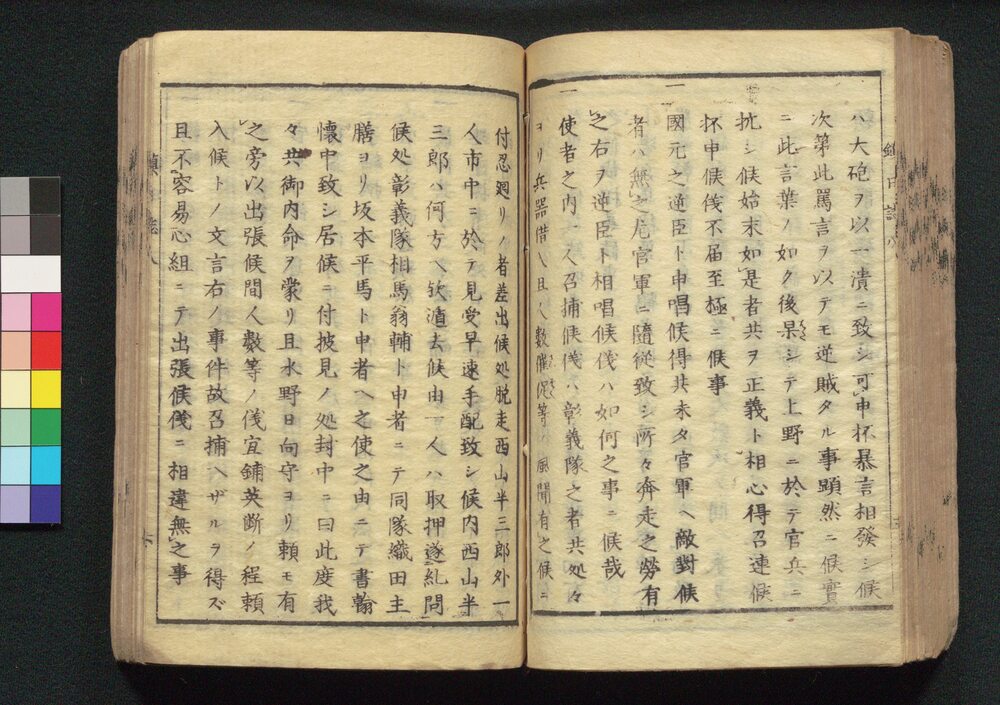 ハ大砲ヲ以一潰ニ致シ可申抔暴言相發シ候
次第此罵言ヲ以テモ逆賊タル事顕然ニ候實
ニ此言葉ノ如ク後果シテ上野ニ於テ官兵ニ
抗シ候始末如是者共ヲ正義ト相心得召連候
抔申候儀不届至極ニ候事
一
國元之逆臣ト申唱候得共未タ官軍ヘ敵對候
者ハ無之尤官軍ニ隨従致シ所々奔走之勞有
之右ヲ逆臣ト相唱候儀ハ如何之事ニ候哉
一
使者之内一人召捕候儀ハ彰義隊之者共処々
ヨリ兵器借入且人數催促等ノ風聞有之候ニ
付忍廻リノ者差出候処脱走西山半三郎外一
人市中ニ於テ見受早速手配致シ候内西山半
三郎ハ何方ヘ欤遁去候由一人ハ取押遂糺問
候処彰義隊相馬翁輔ト申者ニテ同隊織田主
膳ヨリ坂本平馬ト申者ヘ之使之由ニテ書翰
懐中致シ居候ニ付披見ノ処封中ニ曰此度我
々共御内命ヲ蒙リ且水野日向守ヨリ頼モ有
之旁以出張候間人數等ノ儀宜鋪英断ノ程頼
入候トノ文言右ノ事件故召捕ヘザルヲ得ズ
且不容易心組ニテ出張候儀ニ相違無之事